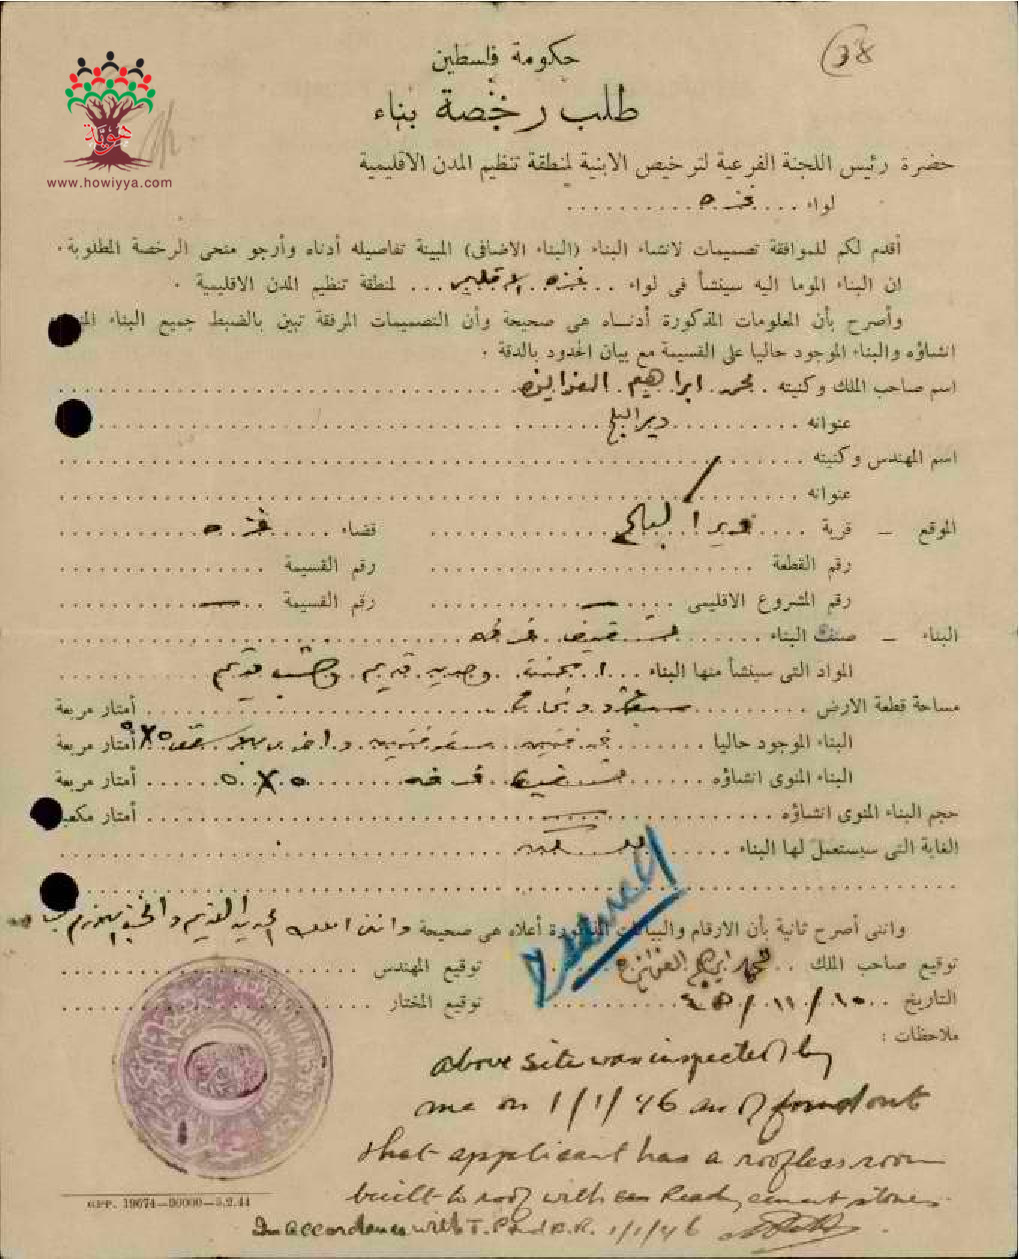 38
حكومة فلسطين
طلب رخصة بناء
هوية
www.howiyya.com
حضرة رئيس اللجنة الفرعية لترخيص الابنية لمنطقة تنظيم المدن الاقليمية
لواء .... غزه ..........
أقدم لكم للموافقة تصميمات لانشاء البناء (البناء الاضافى) المبينة تفاصيله أدناه وأرجو منحى الرخصة المطلوبة .
ان البناء الموما اليه سينشأ فى لواء ... غزه ... لمنطقة تنظيم المدن الاقليمية .
وأصرح بأن المعلومات المذكورة أدناه هى صحيحة وأن التصميمات المرفقة تبين بالضبط جميع البناء
انشاؤه والبناء الموجود حاليا على القسيمة مع بيان الحدود بالدقة .
اسم صاحب الملك وكنيته . محمد ابراهيم
عنوانه .......... دير البلح
اسم المهندس وكنيته
عنوانه
الموقع – قرية .... دير البلح .... قضاء .... غزه
رقم القطعة .......... رقم القسيمة
رقم المشروع الاقليمى .... — .... رقم القسيمة .. —
البناء – صنف البناء ...... غرفه
المواد التى سينشأ منها البناء ... وحديد قديم وخشب قديم
مساحة قطعة الارض .......... أمتار مربعة
البناء الموجود حاليا .......... ٥×٥ أمتار مربعة
البناء المنوى انشاؤه ...... غرفه ... ٥ × ٥ ...... أمتار مربعة
حجم البناء المنوى انشاؤه .......... أمتار مكعبة
الغاية التى سيستعمل لها البناء
وانى أصرح ثانية بأن الارقام والبيانات المذكورة أعلاه هى صحيحة
توقيع صاحب الملك .. محمد ابراهيم .... توقيع المهندس
التاريخ .. ١٠/١١/٤٥ .... توقيع المختار
ملاحظات :
above site was inspected by
me on 1/1/46 and found out
that applicant has a roofless room
built to roof with cement stones.
In accordance with T. P. 1/1/46
GPP. 19674—90000—5.2.44